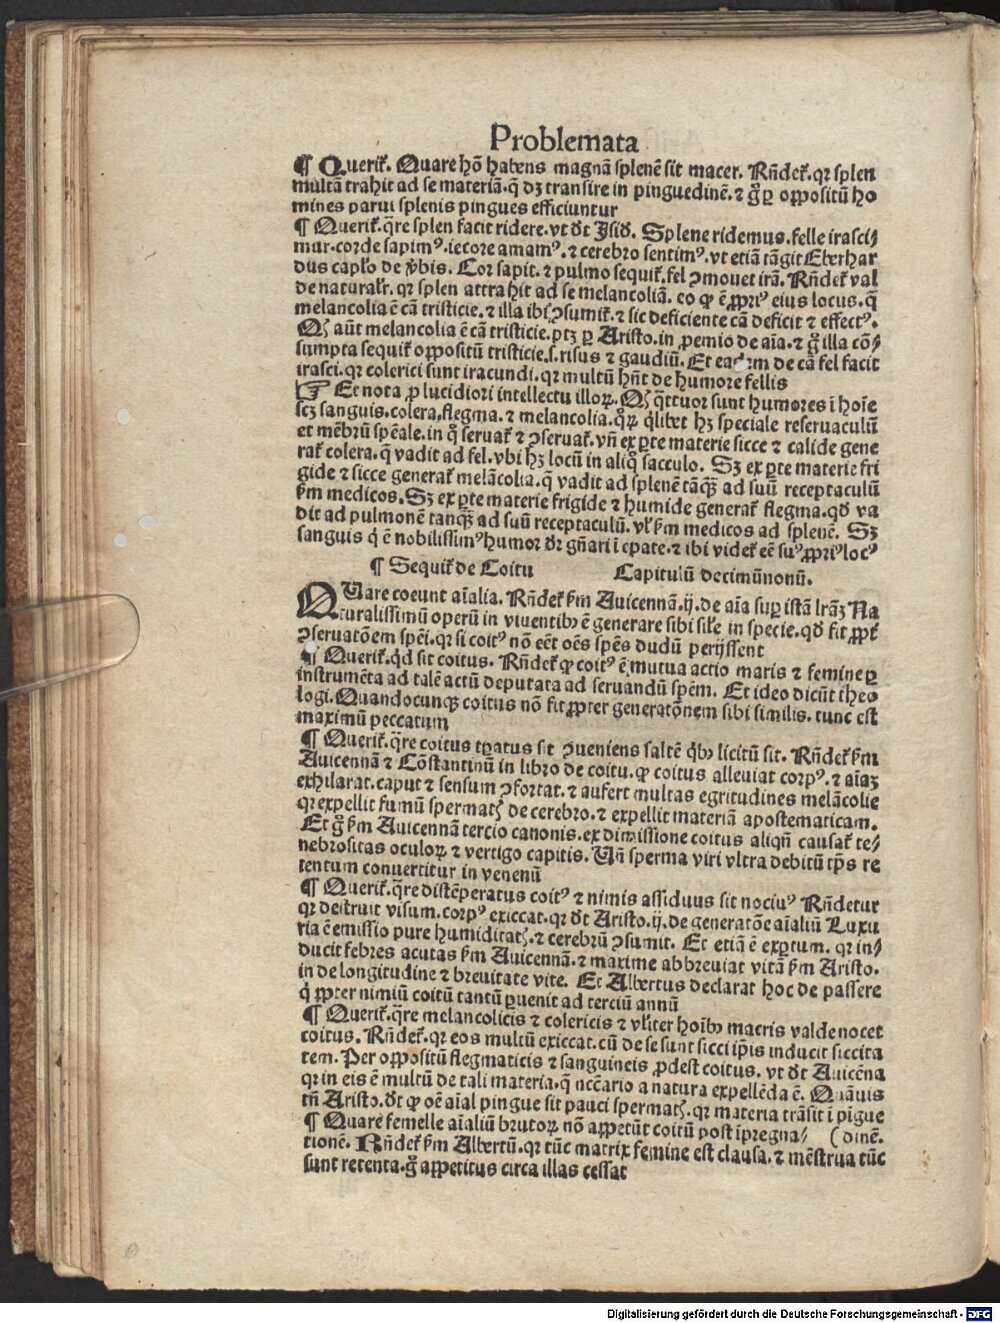 Problemata
¶ Querit᷑. Quare hõ habens magnã splenẽ sit macer. Rñdet᷑. qꝛ splen
multã trahit ad se materiã. q̃ dꝫ transire in pinguedinẽ. ⁊ g̊ ꝑ oppositũ ho
mines parui splenis pingues efficiuntur
¶ Querit᷑. q̃re splen facit ridere. vt dt̃ Isid̃. Splene ridemus. felle irasci/
mur. corde sapimꝰ. iecore amamꝰ. ⁊ cerebro sentimꝰ. vt etiã tãgit Eberhar
dus cap̃lo de v̾bis. Cor sapit. ⁊ pulmo sequit᷑. fel ꝯmouet irã. Rñdet᷑ val
de natural᷑r. qꝛ splen attrahit ad se melancoliã. eo ꝙ ẽ ꝓpriꝰ eius locus. q̃
melancolia ẽ cã tristicie. ⁊ illa ibi ꝯsumit᷑. ⁊ sic deficiente cã deficit ⁊ effectꝰ.
Qꝫ aũt melancolia ẽ cã tristicie. ptꝫ ꝑ Aristo. in ꝓemio de aĩa. ⁊ g̊ illa cõ/
sumpta sequit᷑ oppositũ tristicie. s. risus ⁊ gaudiũ. Et eadem de cã fel facit
irasci. qꝛ colerici sunt iracundi. qꝛ multũ hñt de humore fellis
☞ Et nota ꝓ lucidiori intellectu illoꝝ. Qꝫ q̃ttuor sunt humores ĩ hoĩe
scꝫ sanguis. colera, flegma. ⁊ melancolia. qͦꝝ q̃libet hꝫ speciale reseruaculũ
et mẽbrũ spẽale. in qͦ seruat᷑ ⁊ ꝯseruat᷑. vñ ex ꝑte materie sicce ⁊ calide gene
rat᷑ colera. q̃ vadit ad fel. vbi hꝫ locũ in aliqͦ sacculo. Sꝫ ex ꝑte materie fri
gide ⁊ sicce generat᷑ melãcolia. q̃ vadit ad splenẽ tãqꝫ̃ ad suũ receptaculũ
ẜm medicos. Sꝫ ex ꝑte materie frigide ⁊ humide generat᷑ flegma. qd̃ va
dit ad pulmonẽ tanqꝫ̃ ad suũ receptaculũ. vl᷑ ẜm medicos ad splenẽ. Sꝫ
sanguis q̇ ẽ nobilissimꝰ humor dr̃ gñari ĩ epate. ⁊ ibi videt᷑ eẽ suꝰ ꝓpriꝰ locꝰ
¶ Sequit᷑ de Coitu Capitulũ decimũnonũ.
QUare coeunt aĩalia. Rñdet᷑ ẜm Auicennã. ij. de aĩa suꝑ istã lrãꝫ Na
turalissimũ operũ in viuentibꝰ ẽ generare sibi sil᷑e in specie. qd̃ fit ꝓpt᷑
ꝯseruatõem spẽi. qꝛ si coitꝰ nõ eẽt oẽs spẽs dudũ perijssent
¶ Querit᷑. qd̃ sit coitus. Rñdet᷑ ꝙ coitꝰ ẽ mutua actio maris ⁊ femine ꝑ
instrumẽta ad talẽ actũ deputata ad seruandũ spẽm. Et ideo dicũt theo
logi. Quandocunqꝫ coitus nõ fit ꝓpter generatõnem sibi similis. tunc est
maximũ peccatum
¶ Querit᷑. q̃re coitus tꝑatus sit ꝯueniens saltẽ qͥbꝰ licitũ sit. Rñdet᷑ ẜm
Auicennã ⁊ Cõstantinũ in libro de coitu. ꝙ coitus alleuiat corpꝰ. ⁊ aĩaꝫ
exhilarat. caput ⁊ sensum ꝯfortat. ⁊ aufert multas egritudines melãcolie
qꝛ expellit fumũ spermatꝭ de cerebro. ⁊ expellit materiã apostematicam.
Et g̊ ẜm Auicennã tercio canonis. ex dimissione coitus aliqñ causat᷑ te/
nebrositas oculoꝝ ⁊ vertigo capitis. Uñ sperma viri vltra debitũ tp̃s re
tentum conuertitur in venenũ
¶ Querit᷑. q̃re distẽperatus coitꝰ ⁊ nimis assiduus sit nociuꝰ Rñdetur
qꝛ destruit visum. corpꝰ exiccat. qꝛ dt̃ Aristo. ij. de generatõe aĩaliũ Luxu
ria ẽ emissio pure humiditatꝭ. ⁊ cerebrũ ꝯsumit. Et etiã ẽ exꝑtum. qꝛ in/
ducit febres acutas ẜm Auicennã. ⁊ maxime abbreuiat vitã ẜm Aristo.
in de longitudine ⁊ breuitate vite. Et Albertus declarat hoc de passere
q̇ ꝓpter nimiũ coitũ tantũ ꝑuenit ad terciũ annũ
¶ Querit᷑. q̃re melancolicis ⁊ colericis ⁊ vl᷑iter hoĩbꝰ macris valde nocet
coitus. Rñdet᷑. qꝛ eos multũ exiccat. cũ de se sunt sicci ip̃is inducit siccita
tem. Per oppositũ flegmaticis ⁊ sanguineis ꝓdest coitus. vt dt̃ Auicẽna
qꝛ in eis ẽ multũ de tali materia. q̃ ncẽario a natura expellẽda ẽ. Quãuis
tñ Aristo. dt̃ ꝙ oẽ aĩal pingue sit pauci spermatꝭ. qꝛ materia trãsit ĩ pigue
¶ Quare femelle aĩaliũ brutoꝝ nõ appetũt coitũ post ĩpregna/ (dinẽ.
tionẽ. Rñdet᷑ ẜm Albertũ. qꝛ tũc matrix femine est clausa. ⁊ mẽstrua tũc
sunt retenta. g̊ appetitus circa illas cessat
Digitalisierung gefördert durch die Deutsche Forschungsgemeinschaft - DFG